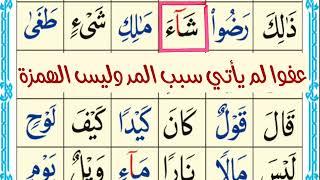 ذَٰلِكَ رَضُوا۟ شَآءَ مَلِكِ شَىْءٍ طَغَىٰ
عفوا لم يأتي سبب المد وليس الهمزة
قَالَ قَوْلٌ كَانَ كَيْدًا كَيْفَ لَوْحٍ
لَيْسَ مَالًا نَارًا مَآءٍ وَيْلٌ يَوْمٍ